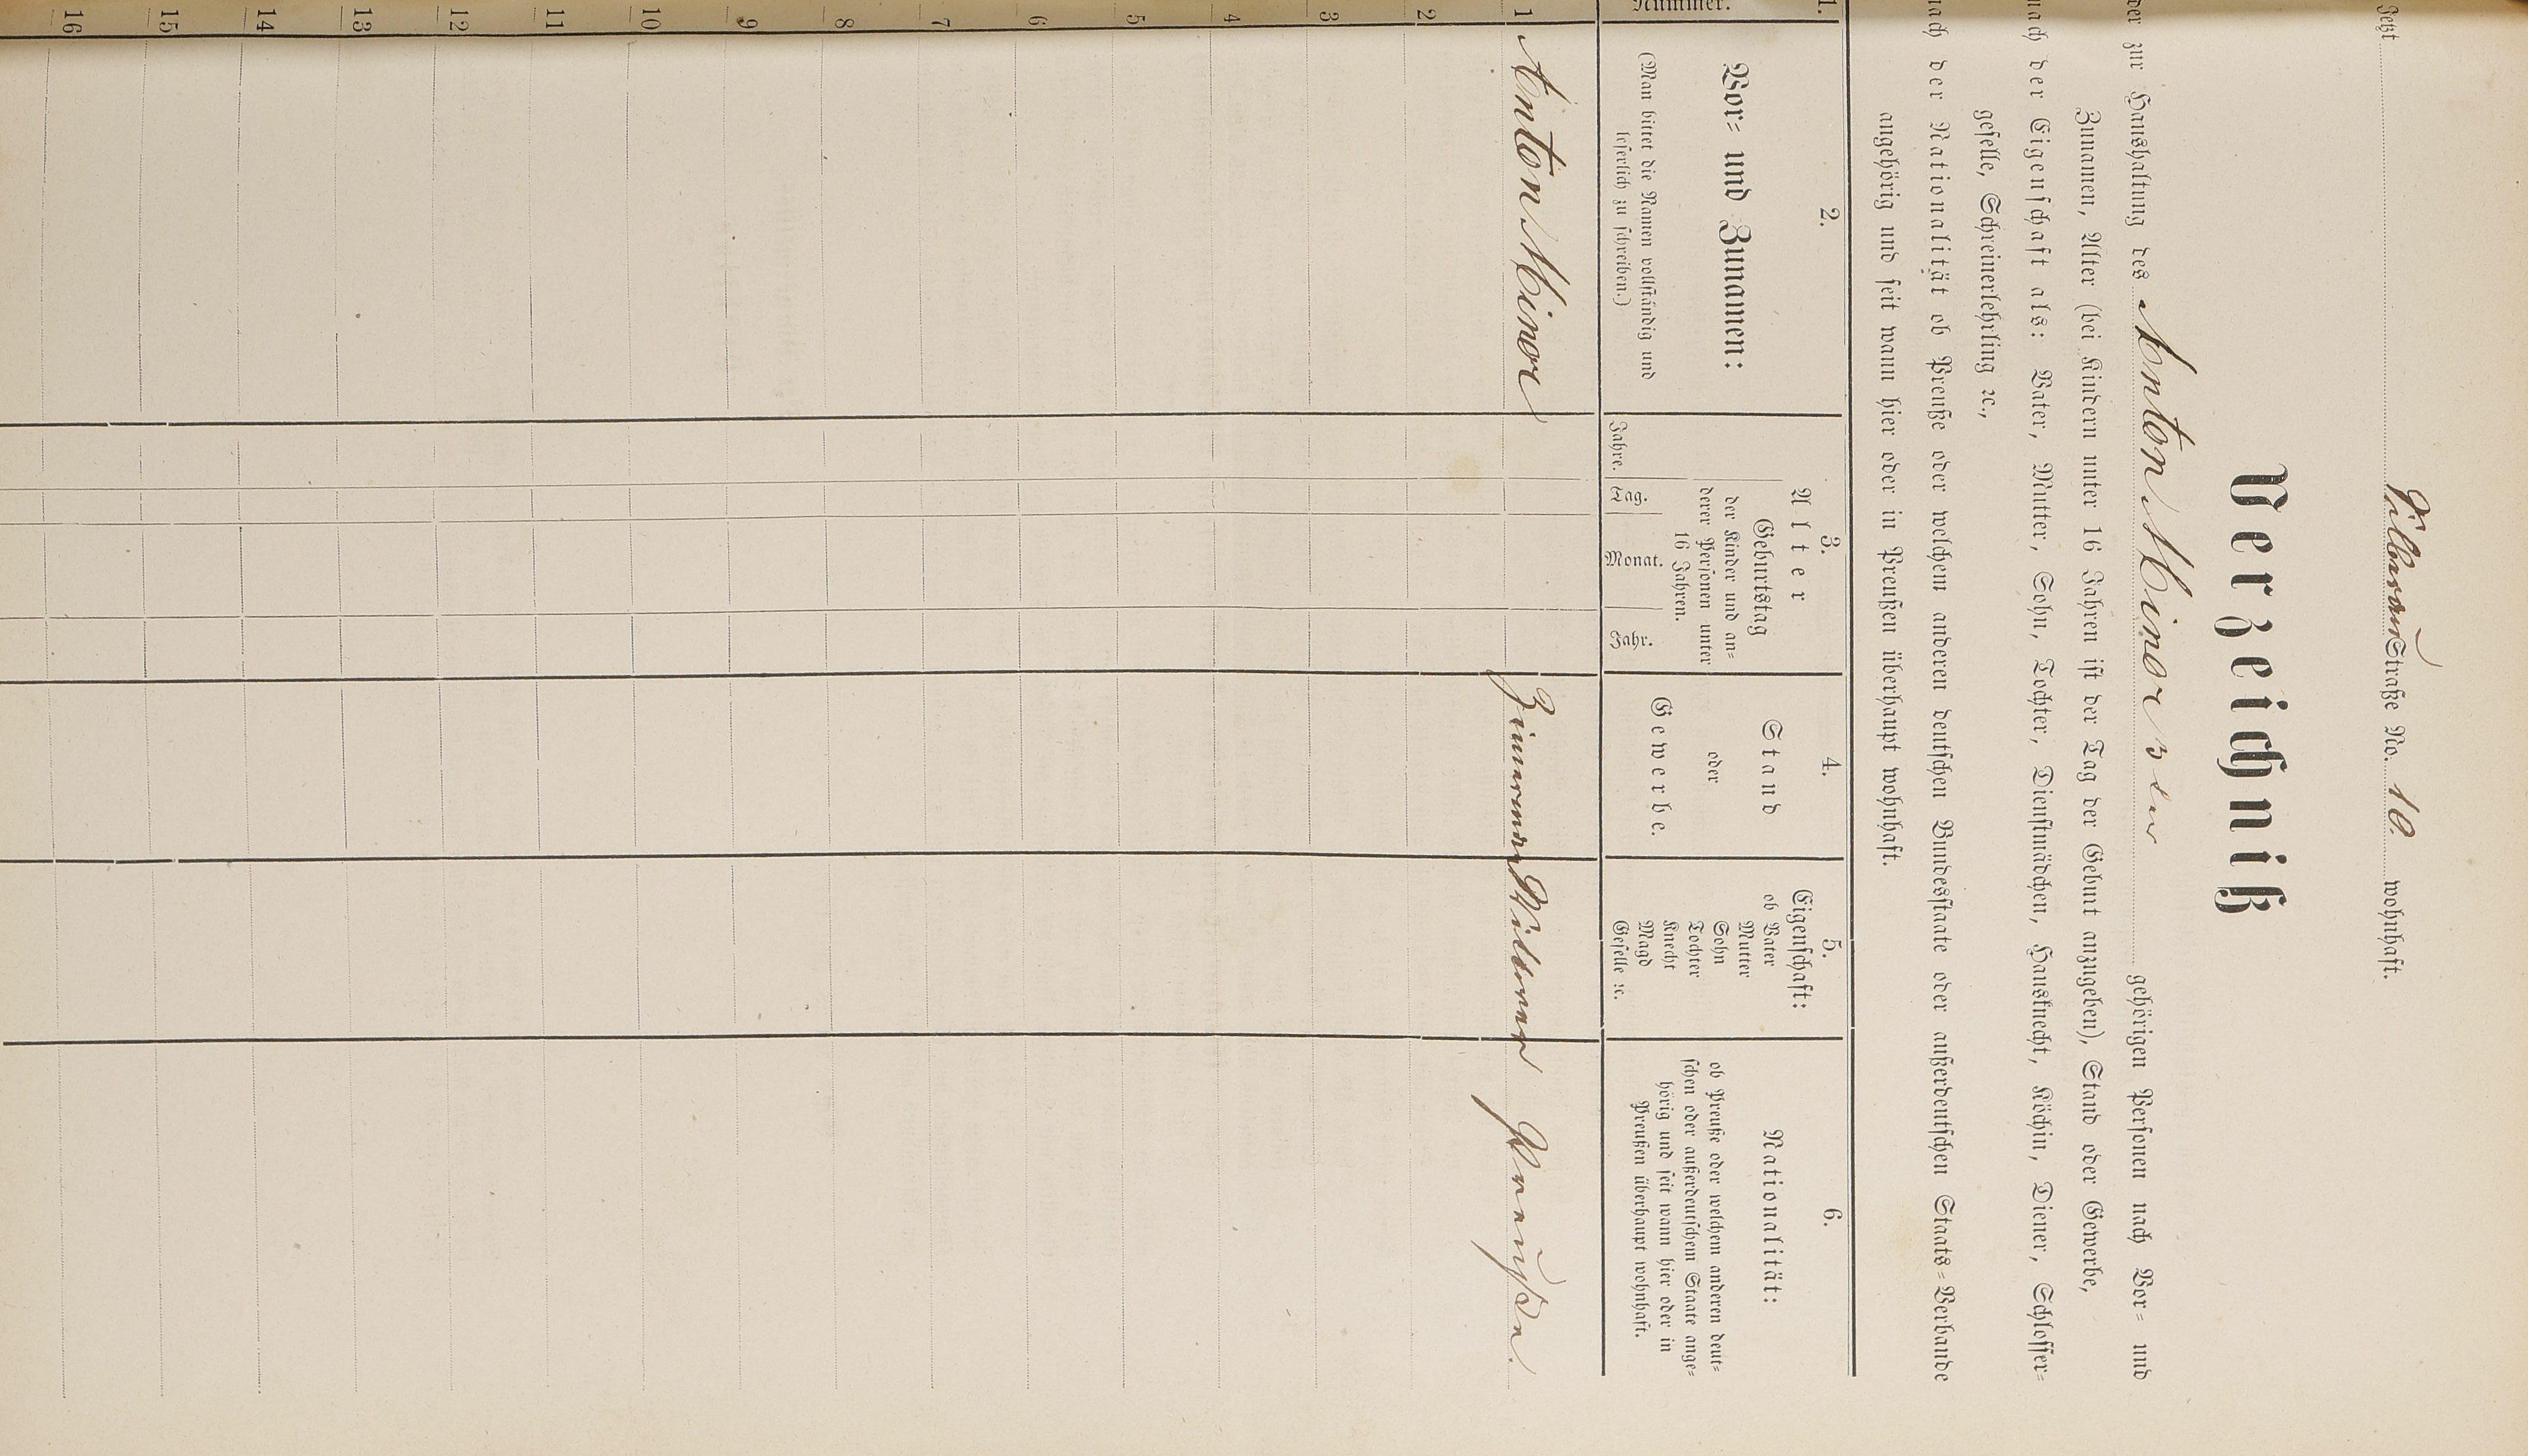 Jetzt Straße No. 10. wohnhaft.
Verzeichniß
der zur Haushaltung des Anton Minor gehörigen Personen nach Vor= und
Zunamen, Alter (bei Kindern unter 16 Jahren ist der Tag der Geburt anzugeben), Stand oder Gewerbe,
nach der Eigenschaft als: Vater, Mutter, Sohn, Tochter, Dienstmädchen, Hausknecht, Köchin, Diener, Schlosser=
geselle, Schreinerlehrling ꝛc.,
nach der Nationalität ob Preuße oder welchem anderen deutschen Bundesstaate oder außerdeutschen Staats=Verbande
angehörig und seit wann hier oder in Preußen überhaupt wohnhaft.
1. 2. 3. 4. 5. 6.
Nummer.
Vor= und Zunamen:
(Man bittet die Namen vollständig und
leserlich zu schreiben.)
Alter
Geburtstag
der Kinder und an=
derer Personen unter
16 Jahren.
Jahre. Tag. Monat. Jahr.
Stand
oder
Gewerbe.
Eigenschaft:
ob Vater
Mutter
Sohn
Tochter
Knecht
Magd
Geselle ꝛc.
Nationalität:
ob Preuße oder welchem anderen deut=
schen oder außerdeutschem Staate ange=
hörig und seit wann hier oder in
Preußen überhaupt wohnhaft.
1 Anton Minor Preußen.
2
3
4
5
6
7
8
9
10
11
12
13
14
15
16